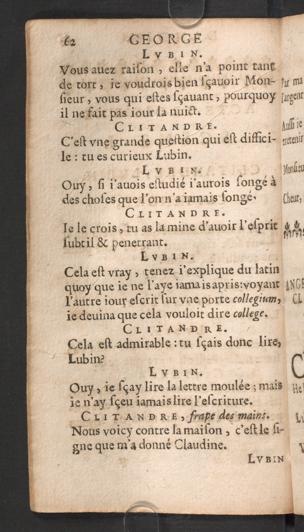 62 GEORGE
LVBIN.
Vous auez raison, elle n'a point tant
de tort, ie voudrois bien sçauoir Mon-
sieur, vous qui estes sçauant, pourquoy
il ne fait pas iour la nuict.
CLITANDRE.
C'est vne grande question qui est difficile-
le : tu es curieux Lubin.
LVBIN.
Ouy, si i'auois estudié i'aurois songé à
des choses que l'on n'a iamais songé.
CLITANDRE.
Ie le crois, tu as la mine d'auoir l'esprit
subtil & penetrant.
LVBIN.
Cela est vray, tenez i'explique du latin
quoy que ie ne l'aye iamais apris: voyant
l'autre iour escrit sur vne porte collegium,
ie deuina que cela vouloit dire college.
CLITANDRE.
Cela est admirable : tu sçais donc lire,
Lubin?
LVBIN.
Ouy, ie sçay lire la lettre moulée ; mais
ie n'ay sçeu iamais lire l'escriture.
CLITANDRE, frape des mains.
Nous voicy contre la maison, c'est le si-
gne que m'a donné Claudine.
LVBIN